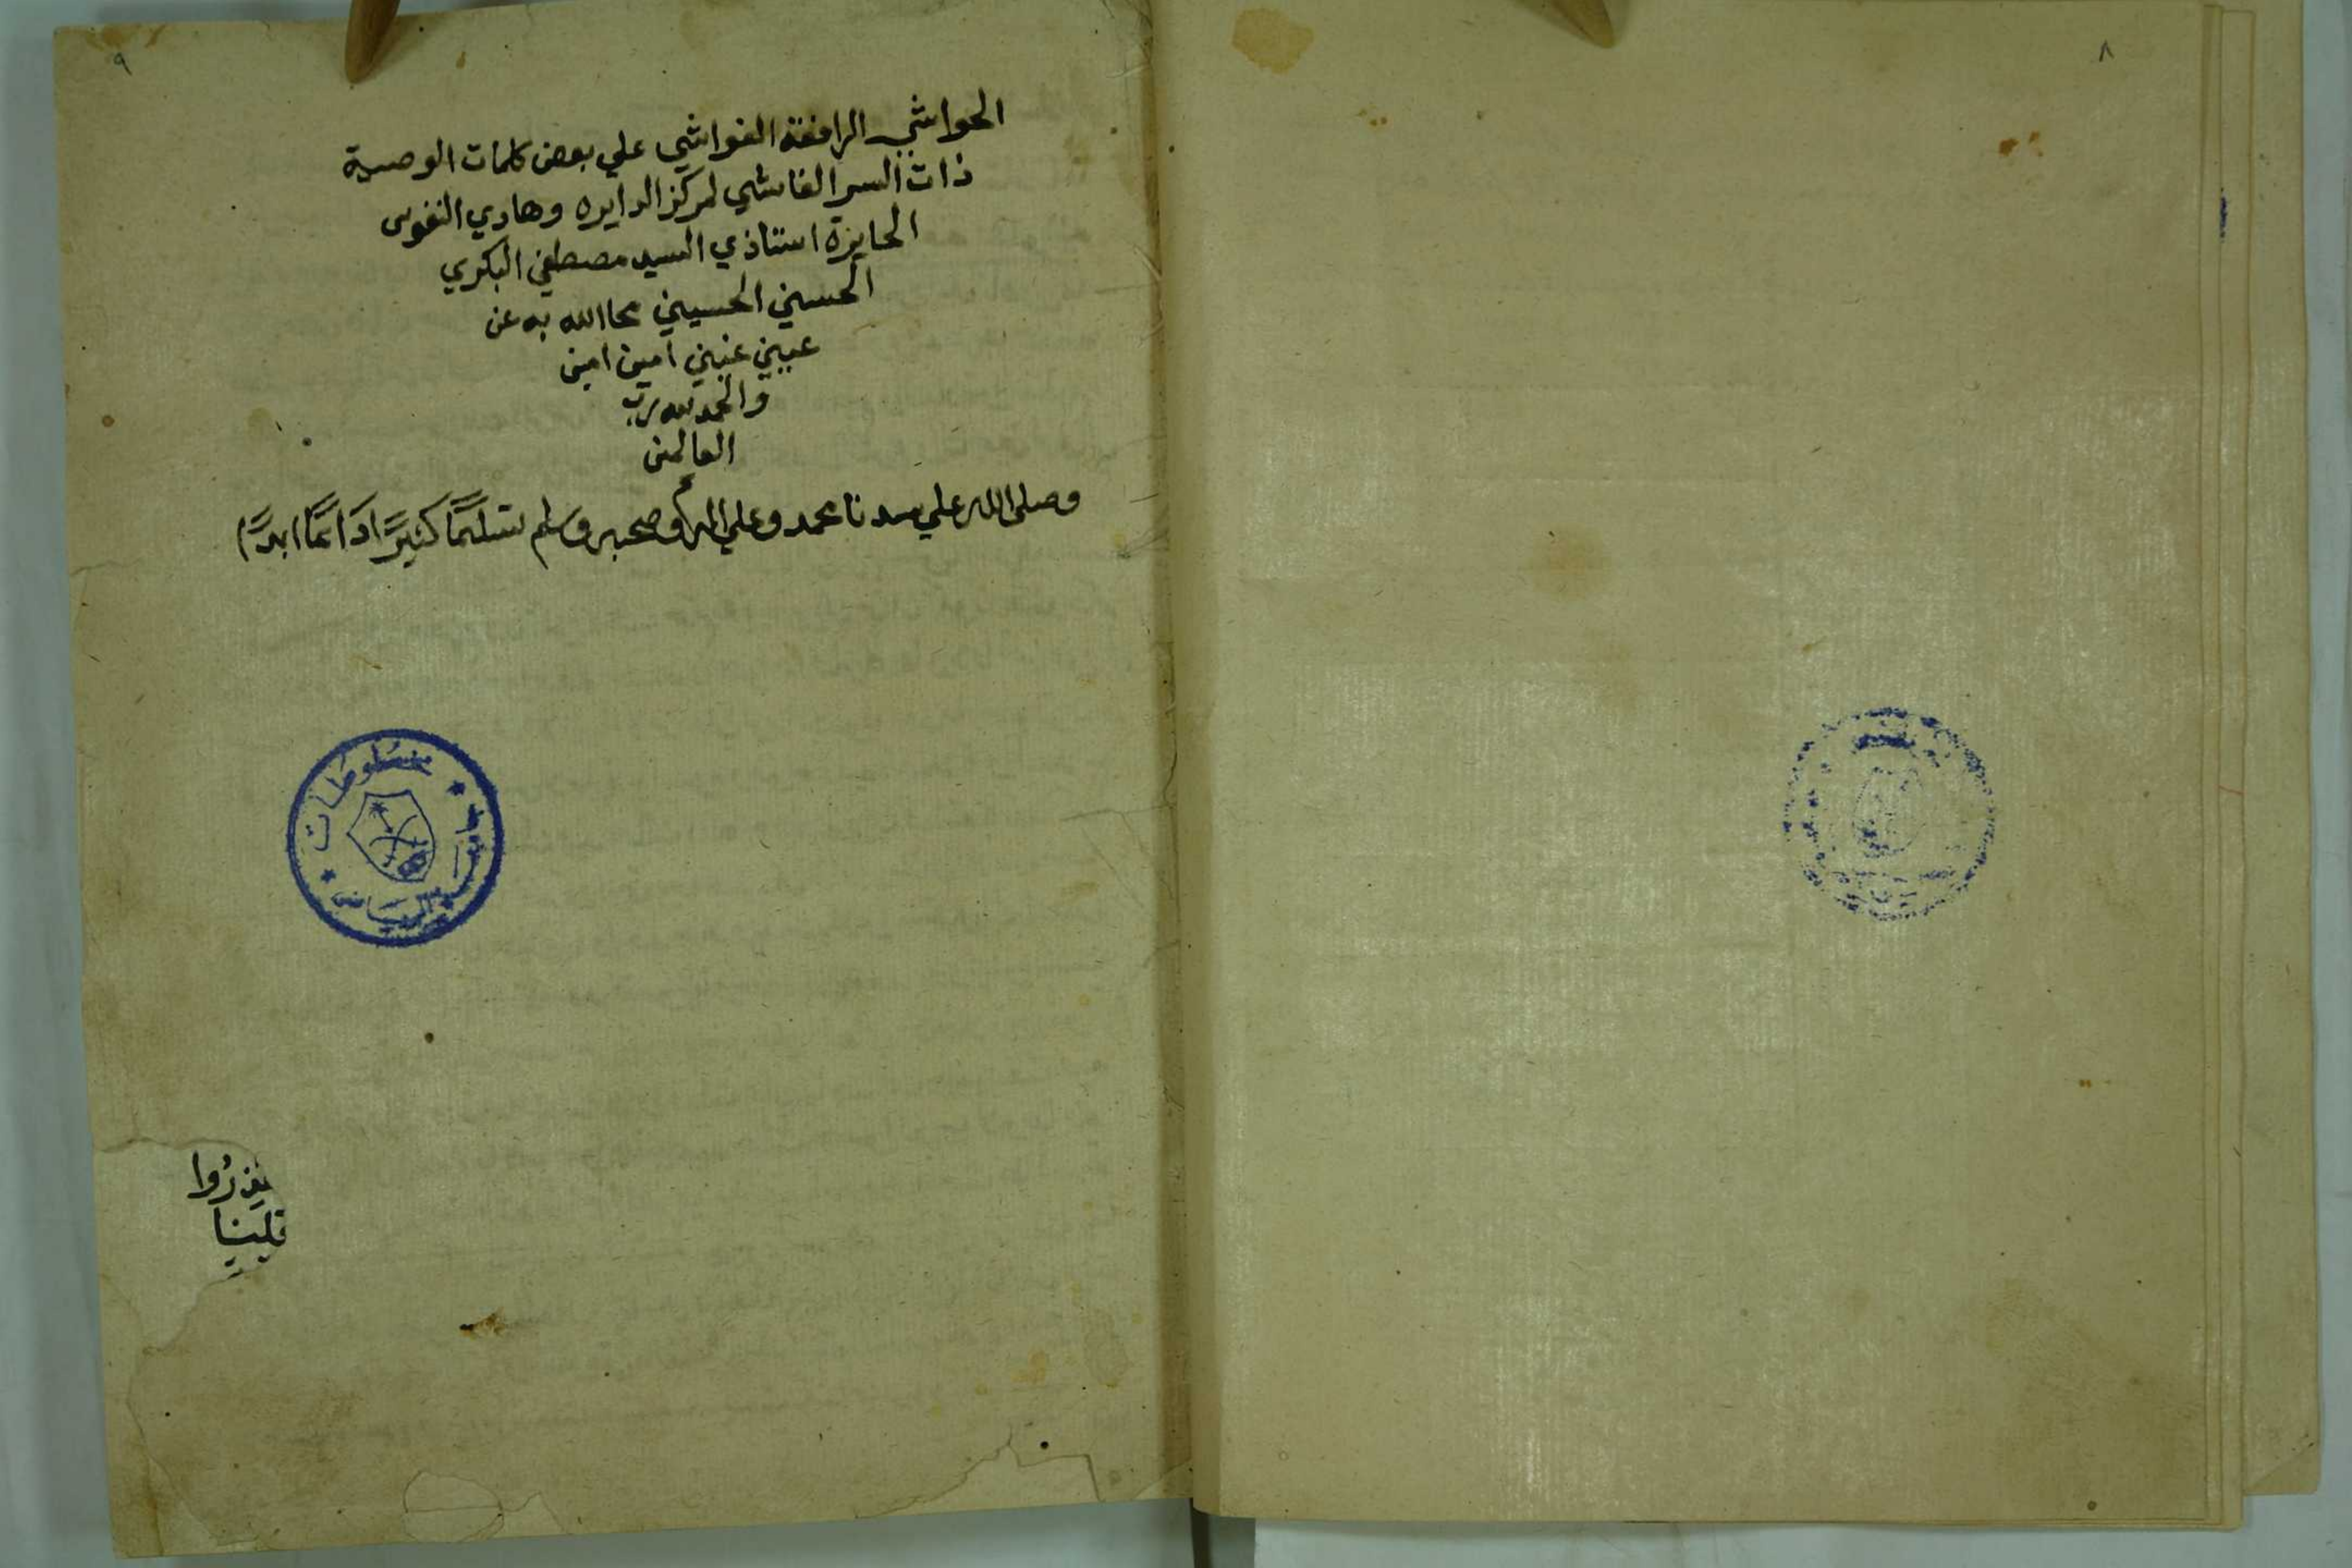 ٨
٩
الحواشي الرافعة الغواشي علي بعض كلمات الوصية
ذات السر الفاشي لمركز الدايره وهادي النفوس
الحايزة استاذي السيد مصطفي البكري
الحسني الحسيني محا الله به عن
عيني غيني امين امين
والحمد لله رب
العالمين
وصلى الله علي سيدنا محمد وعلي اله وصحبه وسلم تسليمًا كثيرًا دَائمًا ابدًا
مخطوطات
جامعة الرياض